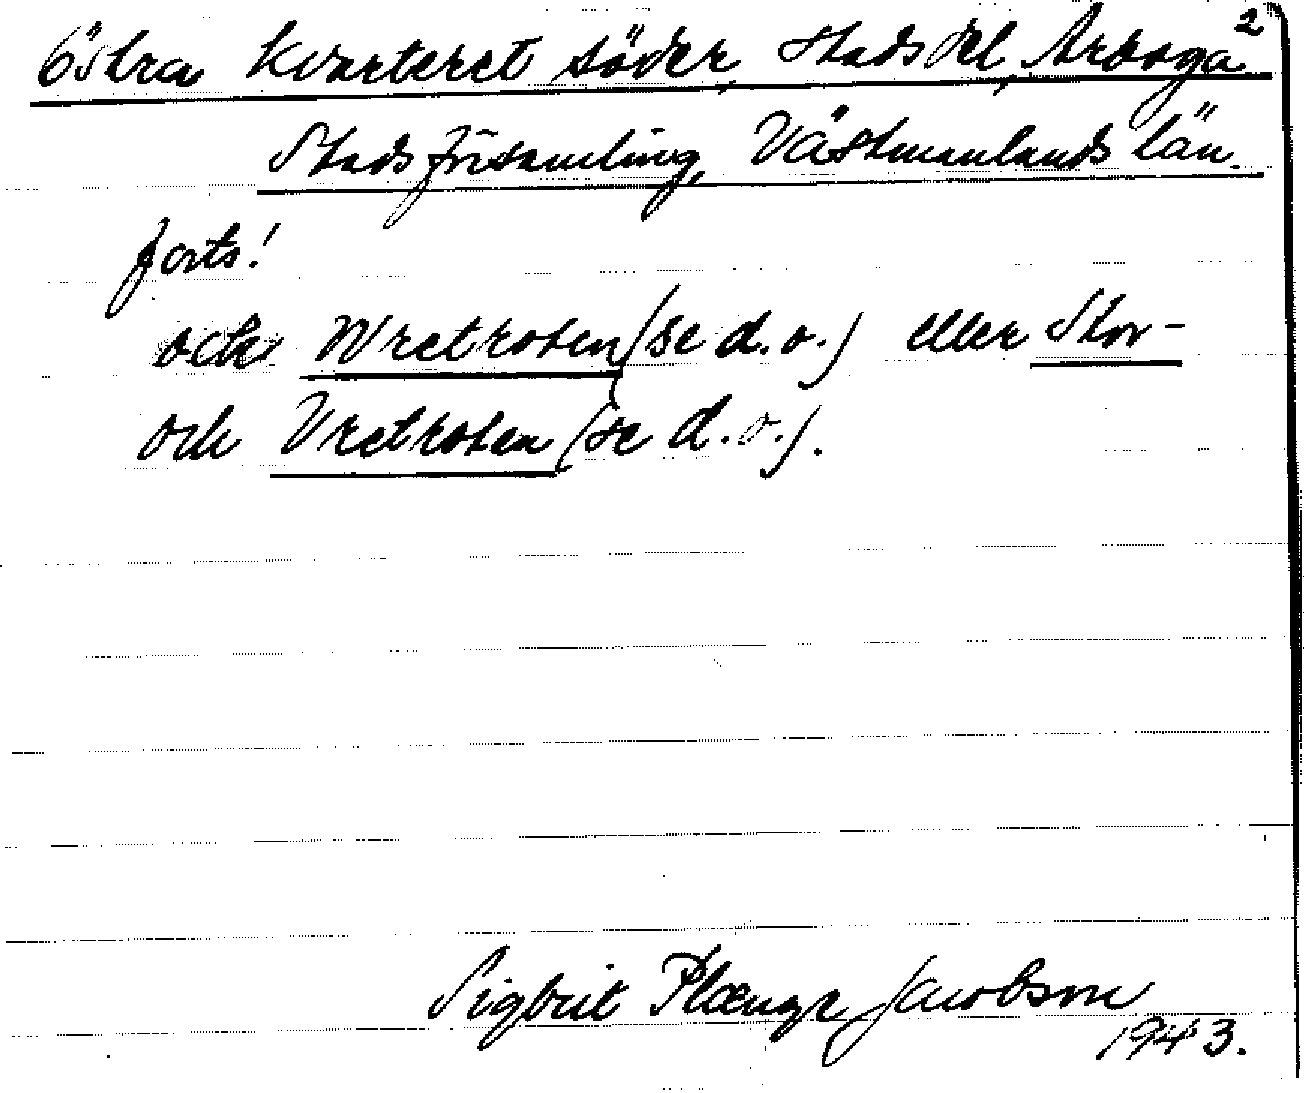 2
Östra kvarteret söder, stadsdel, Arboga
Stadsförsamling, Västmanlands län.
forts!
och Wretroten (se d.o.) eller Stor-
och Vretroten (se d.o.).
Sigbrit Plænge Jacobson
1943.